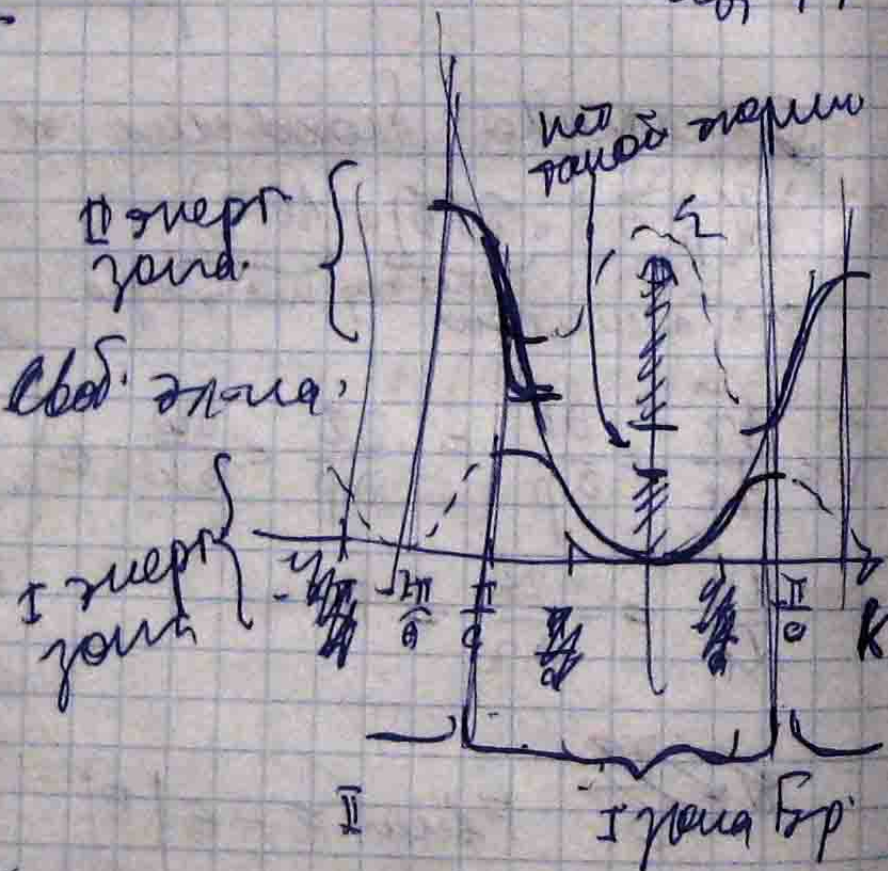 нет
такой энергии
II энерг
зона
ε
Своб. эл-на
I энерг
зона
-2π/a
π/a
π/a
k
II
I зона Бр.